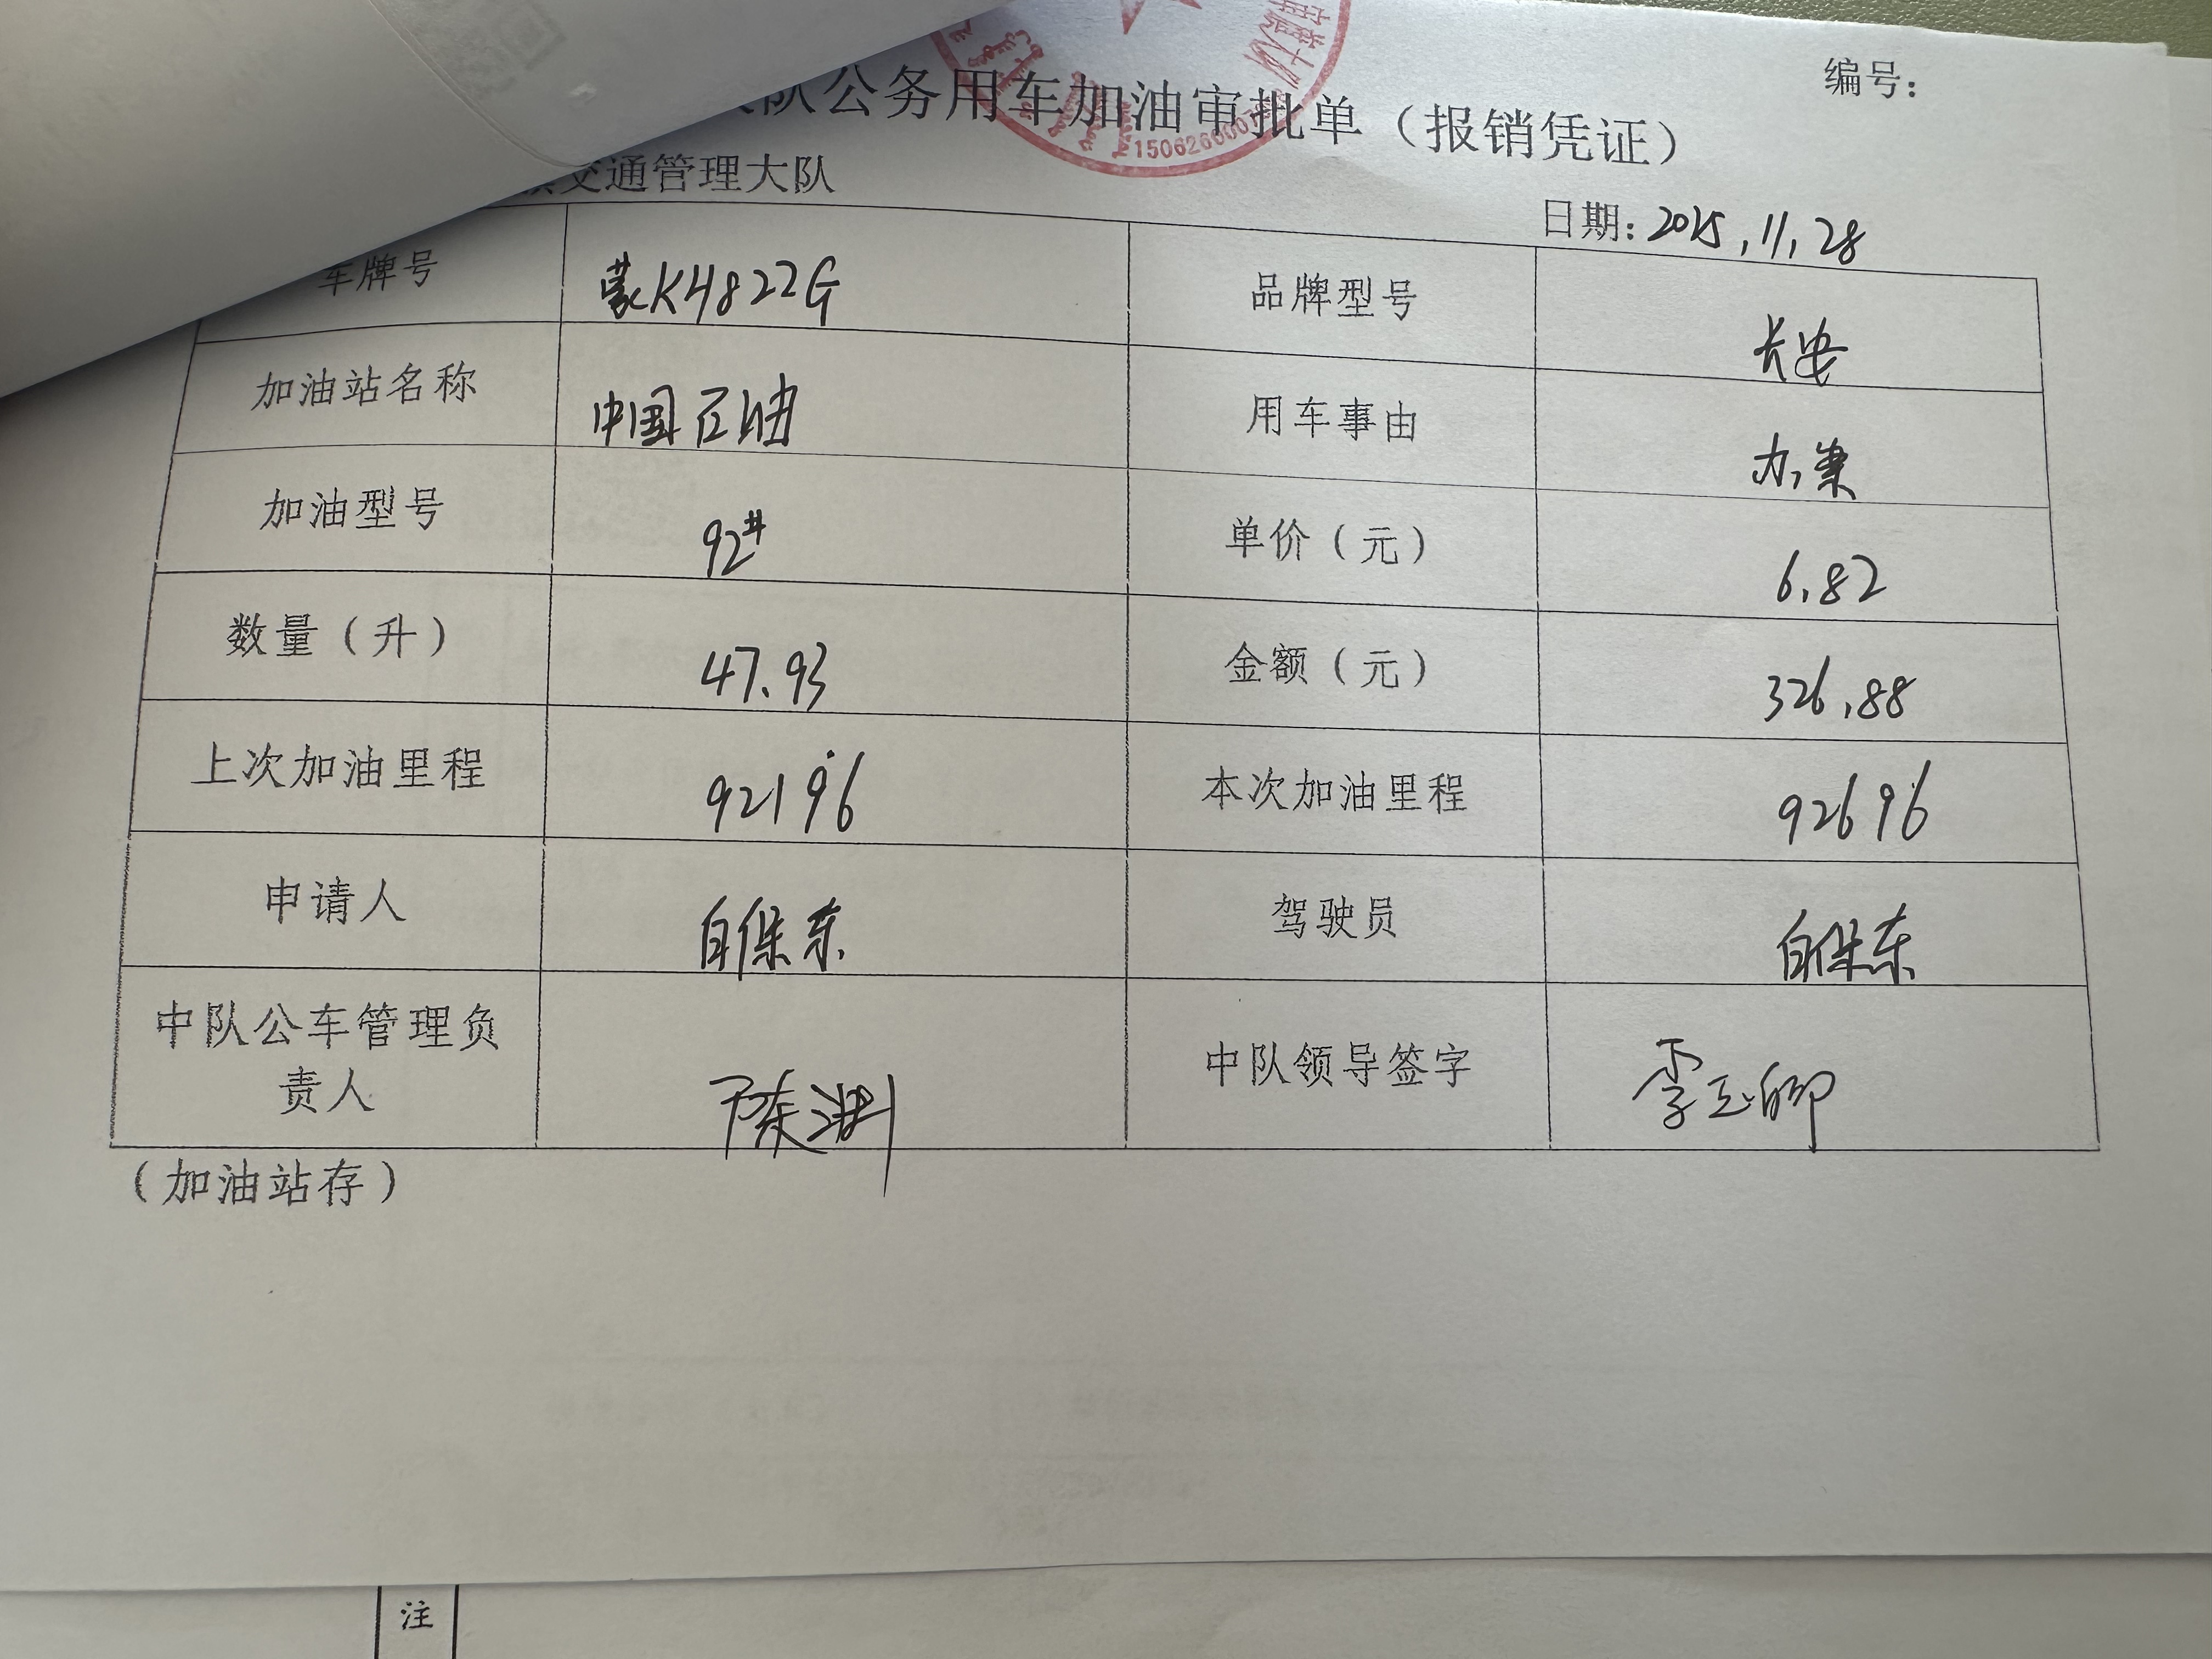 编号：
队公务用车加油审批单（报销凭证）
交通管理大队
日期：2025.11.28
车牌号 蒙K4822G 品牌型号 长安
加油站名称 中国石油 用车事由 办案
加油型号 92# 单价（元） 6.82
数量（升） 47.93 金额（元） 326.88
上次加油里程 92196 本次加油里程 92696
申请人 白保东 驾驶员 白保东
中队公车管理负
责人 中队领导签字
（加油站存）
注